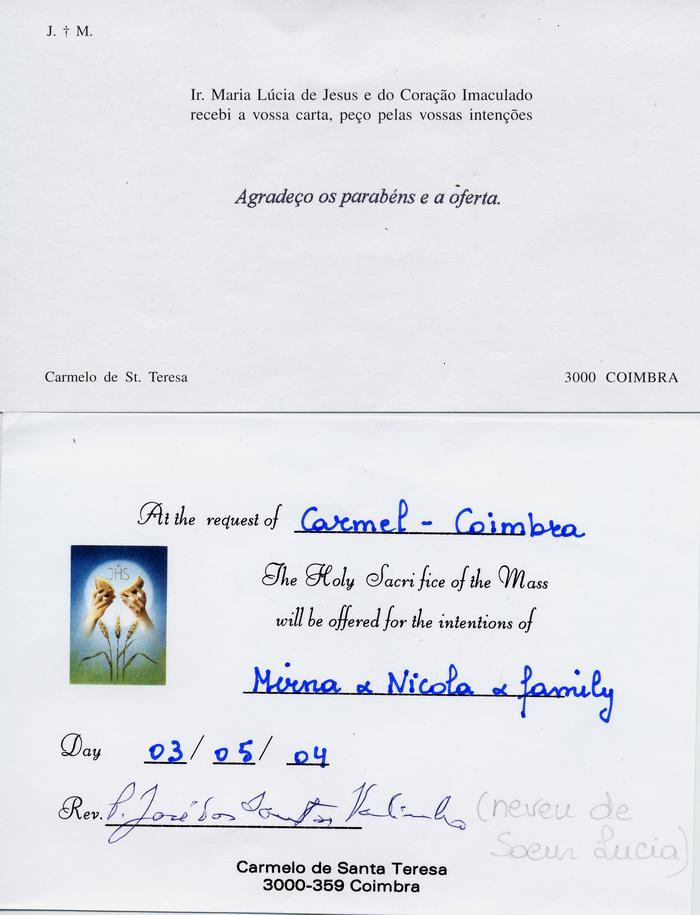 J. † M.
Ir. Maria Lúcia de Jesus e do Coração Imaculado
recebi a vossa carta, peço pelas vossas intenções
Agradeço os parabéns e a oferta.
Carmelo de St. Teresa
3000 COIMBRA
At the request of Carmel - Coimbra
JHS
The Holy Sacrifice of the Mass
will be offered for the intentions of
Mirna & Nicola & family
Day 03/05/04
Rev. P. José dos Santos Valinho (neveu de
Soeur Lucia)
Carmelo de Santa Teresa
3000-359 Coimbra